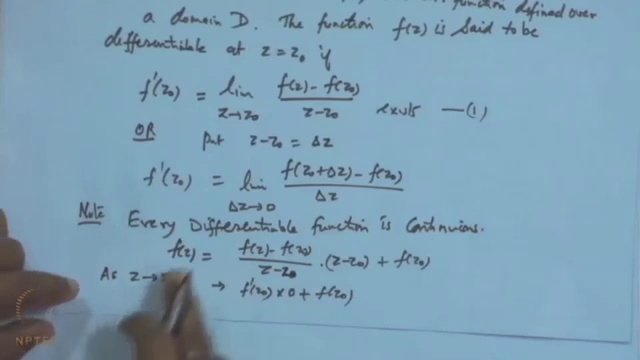 function defined over
a domain D. The function f(z) is said to be
differentiable at z = z₀ if
f'(z₀) = lim z→z₀ (f(z) - f(z₀))/(z - z₀) exists —(1)
OR put z - z₀ = Δz
f'(z₀) = lim Δz→0 (f(z₀+Δz) - f(z₀))/Δz
Note Every Differentiable function is Continuous.
f(z) = (f(z) - f(z₀))/(z - z₀) · (z - z₀) + f(z₀)
As z → → f'(z₀) × 0 + f(z₀)
NPTE